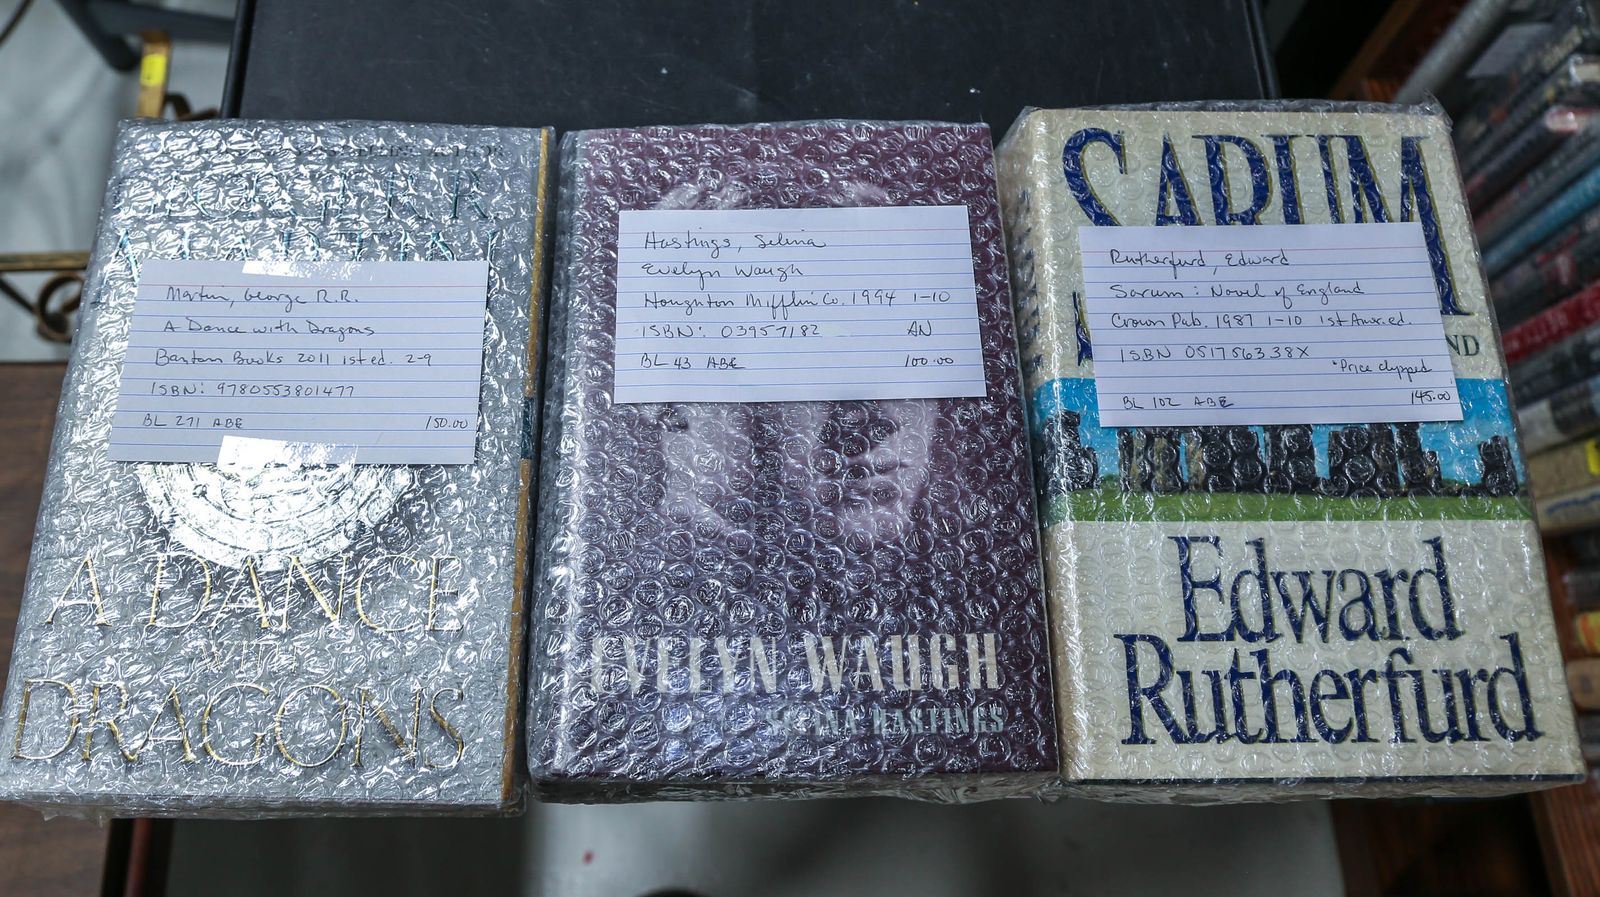 GEORGE R.R.
MARTIN
Martin, George R.R.
A Dance with Dragons
Bantam Books 2011 1st ed. 2-9
ISBN: 9780553801477
BL 271 ABE 150.00
A DANCE
WITH
DRAGONS
Hastings, Selina
Evelyn Waugh
Houghton Mifflin Co. 1994 1-10
ISBN: 03957182 AN
BL 43 ABE 100.00
EVELYN WAUGH
SELINA HASTINGS
SARUM
Rutherfurd, Edward
Sarum: Novel of England
Crown Pub. 1987 1-10 1st Amer. ed.
ISBN 051756338X
*Price clipped
BL 102 ABE 145.00
ND
Edward
Rutherfurd